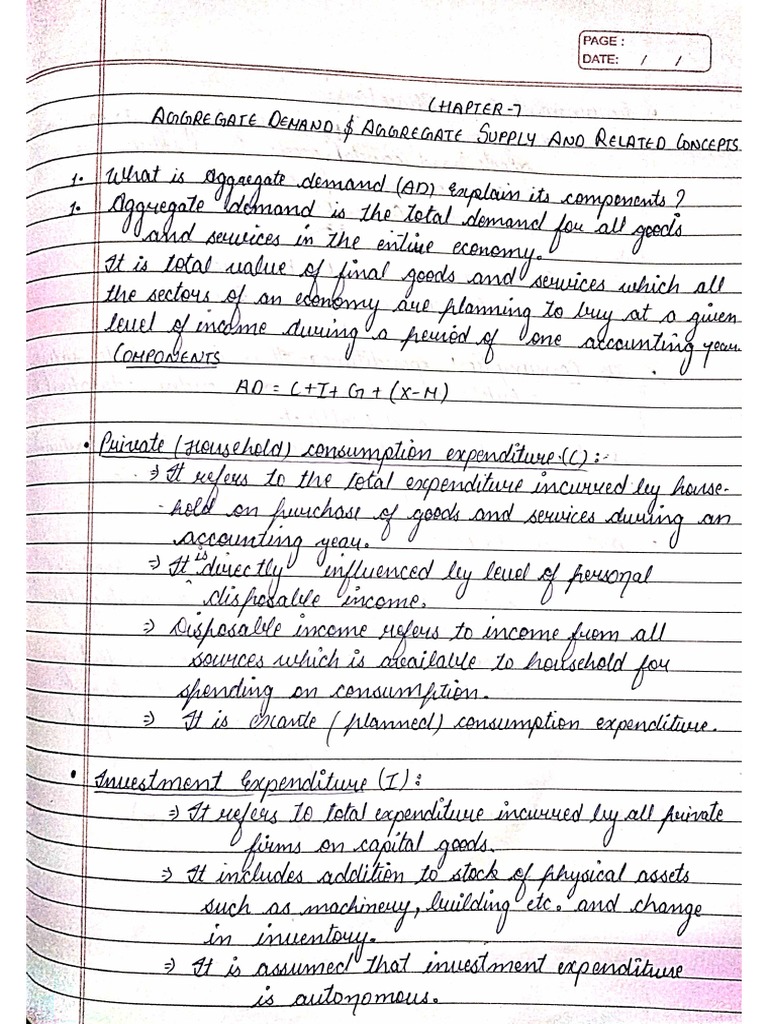 PAGE :
DATE: / /
CHAPTER-7
AGGREGATE DEMAND & AGGREGATE SUPPLY AND RELATED CONCEPTS
1. What is Aggregate demand (AD) Explain its components ?
1. Aggregate demand is the total demand for all goods
and services in the entire economy.
It is total value of final goods and services which all
the sectors of an economy are planning to buy at a given
level of income during a period of one accounting year.
COMPONENTS
AD = C+I+ G + (X-M)
• Private (Household) consumption expenditure (C) :-
⇒ It refers to the total expenditure incurred by house-
-hold on purchase of goods and services during an
accounting year.
⇒ It is directly influenced by level of personal
disposable income.
⇒ Disposable income refers to income from all
sources which is available to household for
spending on consumption.
⇒ It is exante (planned) consumption expenditure.
• Investment Expenditure (I) :
⇒ It refers to total expenditure incurred by all private
firms on capital goods.
⇒ It includes addition to stock of physical assets
such as machinery, building etc. and change
in inventory.
⇒ It is assumed that investment expenditure
is autonomous.